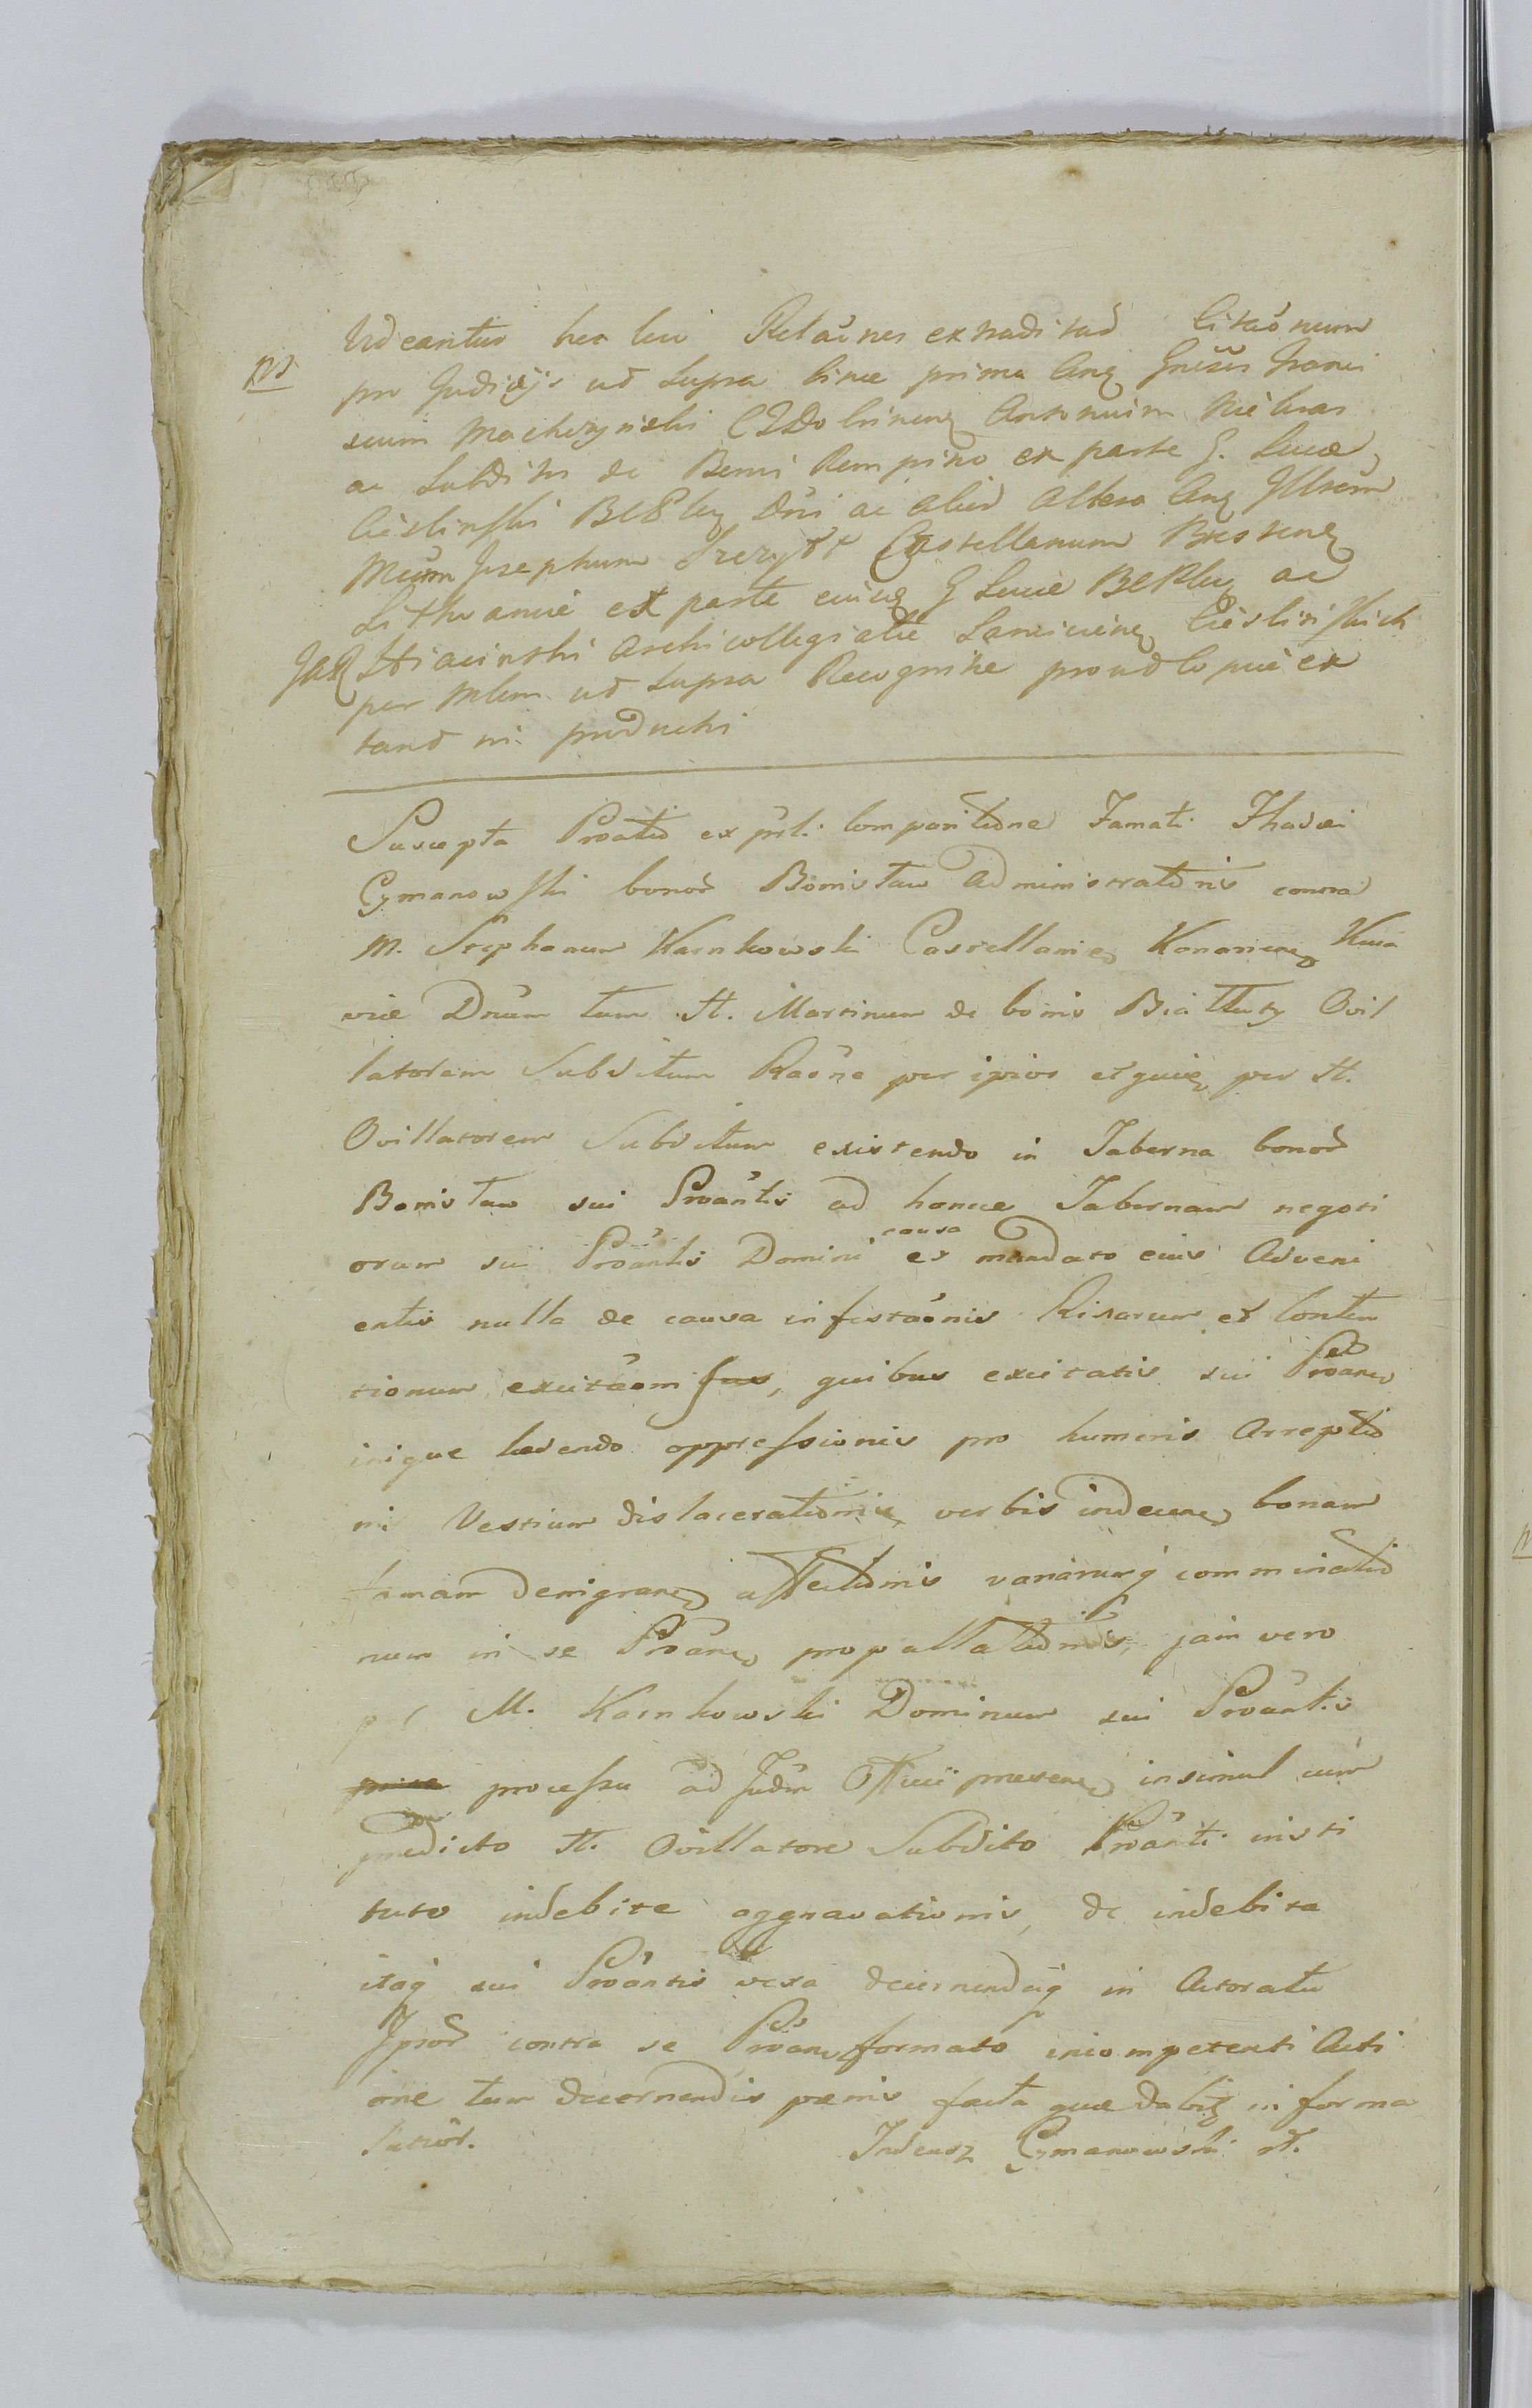 NB
Videantur hea leu Relaõnes extradituõ Citaõnum
pro Judicijs ut supra binæ prima Cnq Gnesem Franci
scum Machczynski CZDobrinenq Antonium
ac Subditos de Bonis Rempino ex parte G. Lucæ
Cieslinski BCSleq Dni ac alies altera Cnq Illrem
Mcũm Josephum Szczytt Castellanum Brestenq
Lithvaniæ ex parte eiusq G Lucæ BCPleq ac
Hiacinski Archicollegiatæ Lanicienq Cieslinskich
per Mlem ut supra Recognitæ prout Copiæ ex
tant in producti
Suscepta Proatio ex prti. Comparitione Famati Thadæi
Cymanowski bonor Bonistaw Administrationis contra
M. Stephanum Karnkowski Castellanieq Konariensq Kuia
viæ Dnum tum H. Martinum de bonis Biattuty Ovil
latorem Subditum Raõne per ipsos et quidq per H.
Ovillatorem Subditum existendo in Taberna bonor
Bonistaw sui Proantis ad hancce Tabernam negoti
orum sui Proantis Domini causa ex mandato eius Adveni
entis nulla de causa infestaõnis Rixarum et Conten
tionum excitaõm fas, quibus excitatis sui Proanq
inique lædendo oppressionis pro humeris Arreptio
ni Vestium dislacerationis verbis indecenq bonam
famam denigranq affectionis variarumq comminatio
num in se Proanq propallationis, jam vero
p M. Karnkowski Dominum sui Proantis
processu ad Judm Officii præsenq insimul cum
prædicto H. Ovillatore Subdito Proanti insti
tuto indebite aggravationis, de indebita
itaq sui Proantis vexa decernendaq in Actoratu
Ipsor contra se Proanq formato incompetenti Acti
one tum decernendis pœnis facta quæ dabitq in forma
latior. Tadeusz Cymanowski